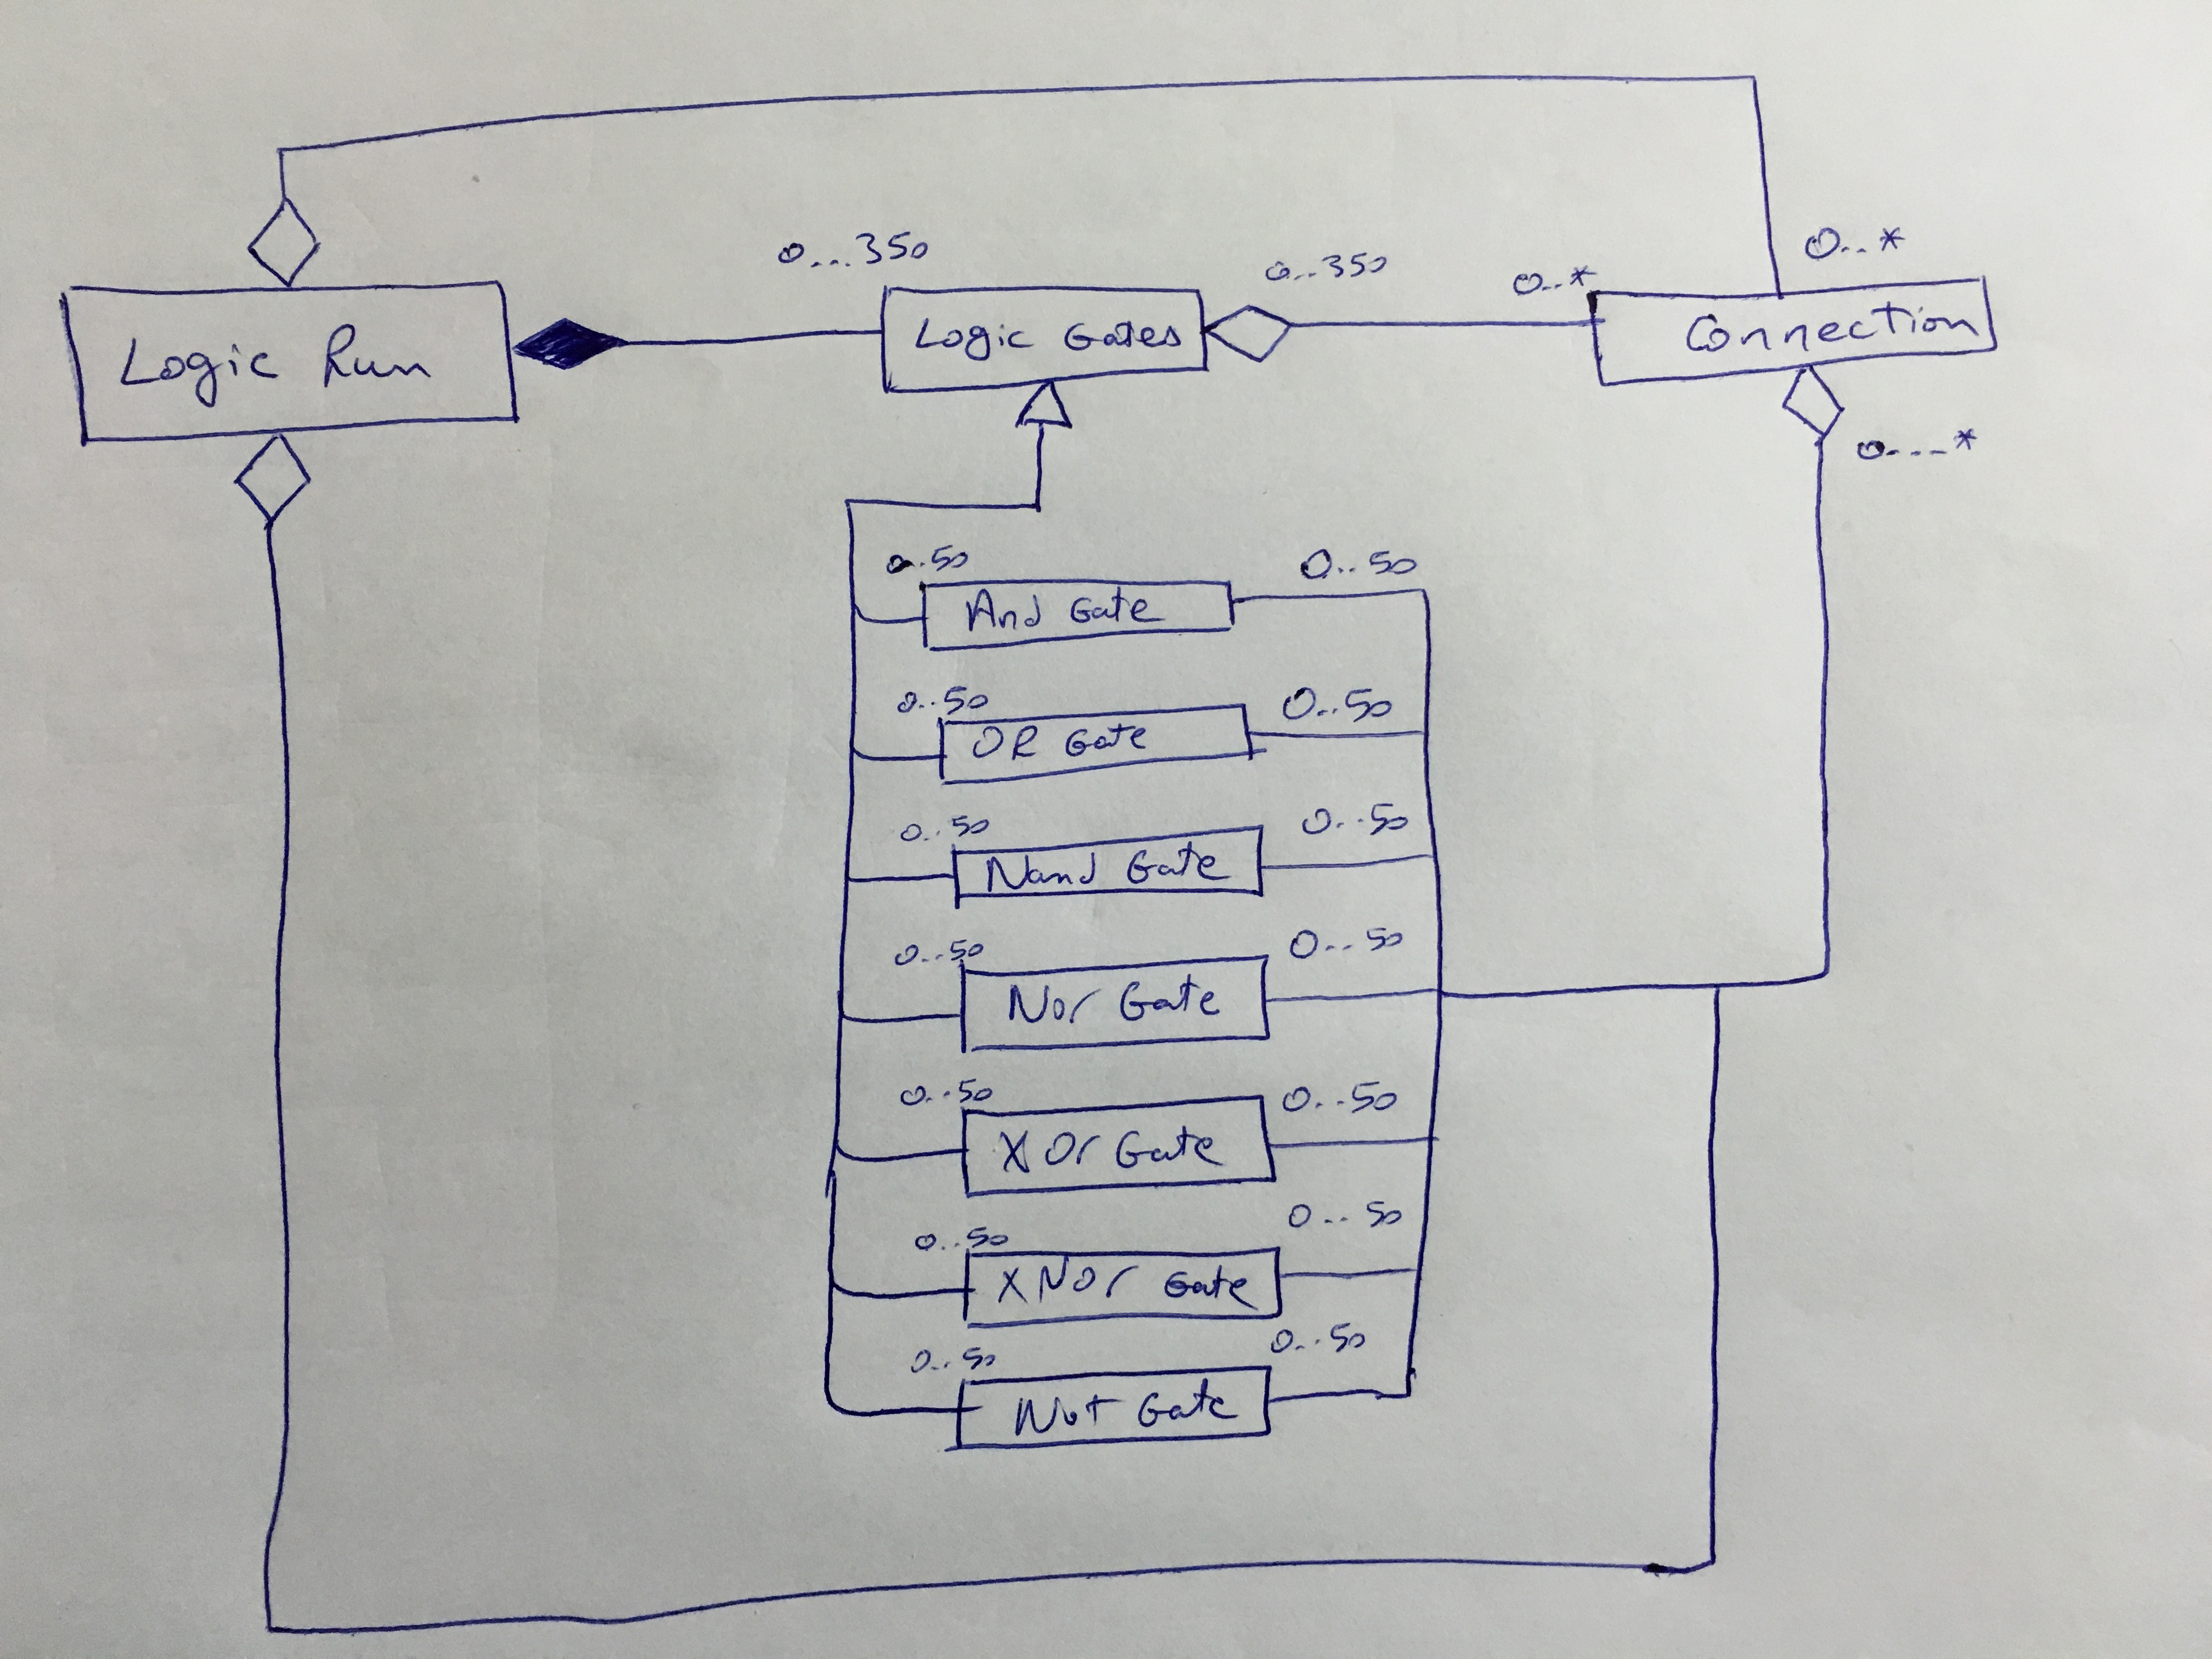 Logic Run
0...350
Logic Gates
0..350
0..*
Connection
0..*
0...*
0..50
And Gate
0..50
0..50
OR Gate
0..50
0..50
Nand Gate
0..50
0..50
Nor Gate
0...50
0..50
XOr Gate
0..50
0..50
XNor Gate
0...50
0...50
Not Gate
0..50